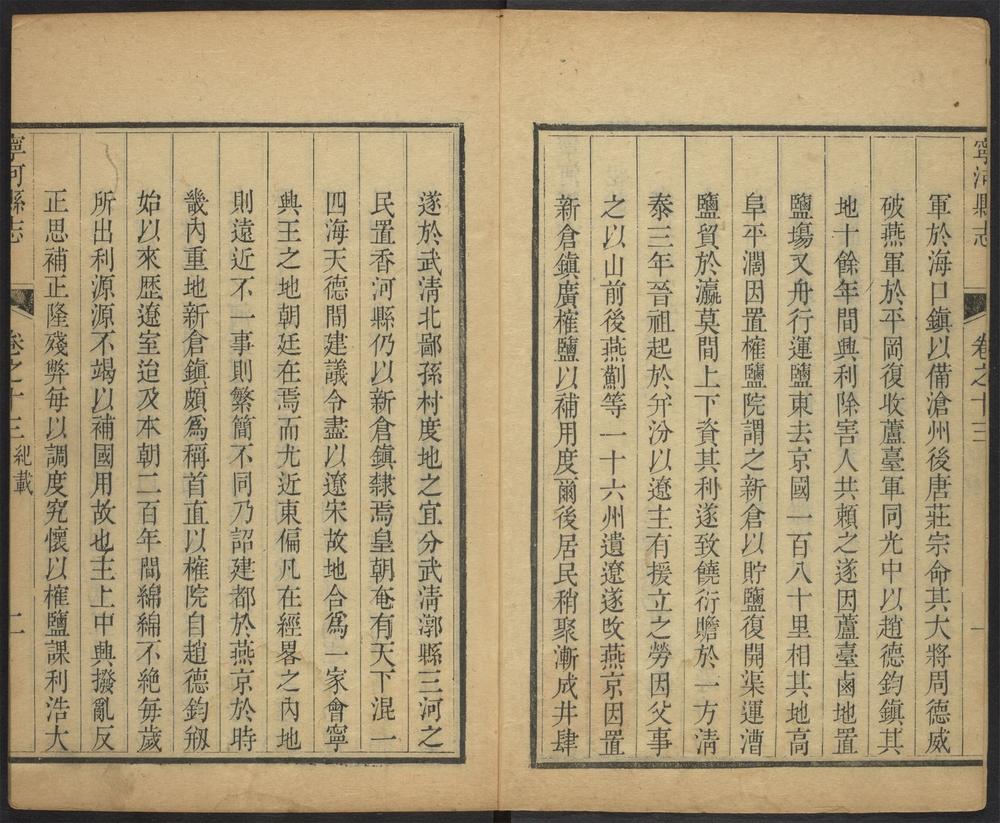 寧河縣志
卷之十三
一
軍於海口鎮以備滄州後唐莊宗命其大將周德威
破燕軍於平岡復收蘆臺軍同光中以趙德鈞鎮其
地十餘年間興利除害人共賴之遂因蘆臺鹵地置
鹽塲又舟行運鹽東去京國一百八十里相其地高
阜平濶因置榷鹽院謂之新倉以貯鹽復開渠運漕
鹽貿於瀛莫間上下資其利遂致饒衍贍於一方清
泰三年晉祖起於幷汾以遼主有援立之勞因父事
之以山前後燕薊等一十六州遺遼遂改燕京因置
新倉鎮廣榷鹽以補用度爾後居民稍聚漸成井肆
遂於武清北鄙孫村度地之宜分武清漷縣三河之
民置香河縣仍以新倉鎮隸焉皇朝奄有天下混一
四海天德間建議令盡以遼宋故地合爲一家會寧
興王之地朝廷在焉而尤近東偏凡在經畧之內地
則遠近不一事則繁簡不同乃詔建都於燕京於時
畿內重地新倉鎮頗爲稱首直以榷院自趙德鈞剏
始以來歷遼室迨及本朝二百年間綿綿不絶每歲
所出利源源不竭以補國用故也主上中興撥亂反
正思補正隆殘弊每以調度究懷以榷鹽課利浩大
寧河縣志
卷之十三 紀載
二